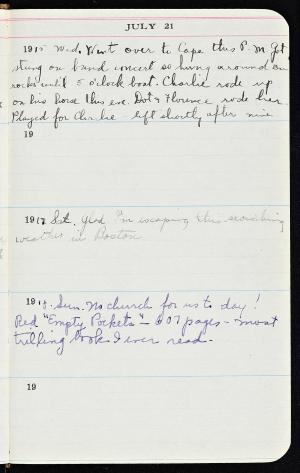 JULY 21
1915 Wed. Went over to Cape this P.M. Got
stung on band concert so hung around on
rocks until 5 o'clock boat. Charlie rode up
on his horse this eve. Dot & Florence rode her.
Played for Charlie left shortly after nine.
19
1917 Sat. Glad I'm escaping this scorching
weather in Boston.
1918. Sun. No church for us to day!
Red "Empty Pockets" - 607 pages - most
trifling book I ever read.
19